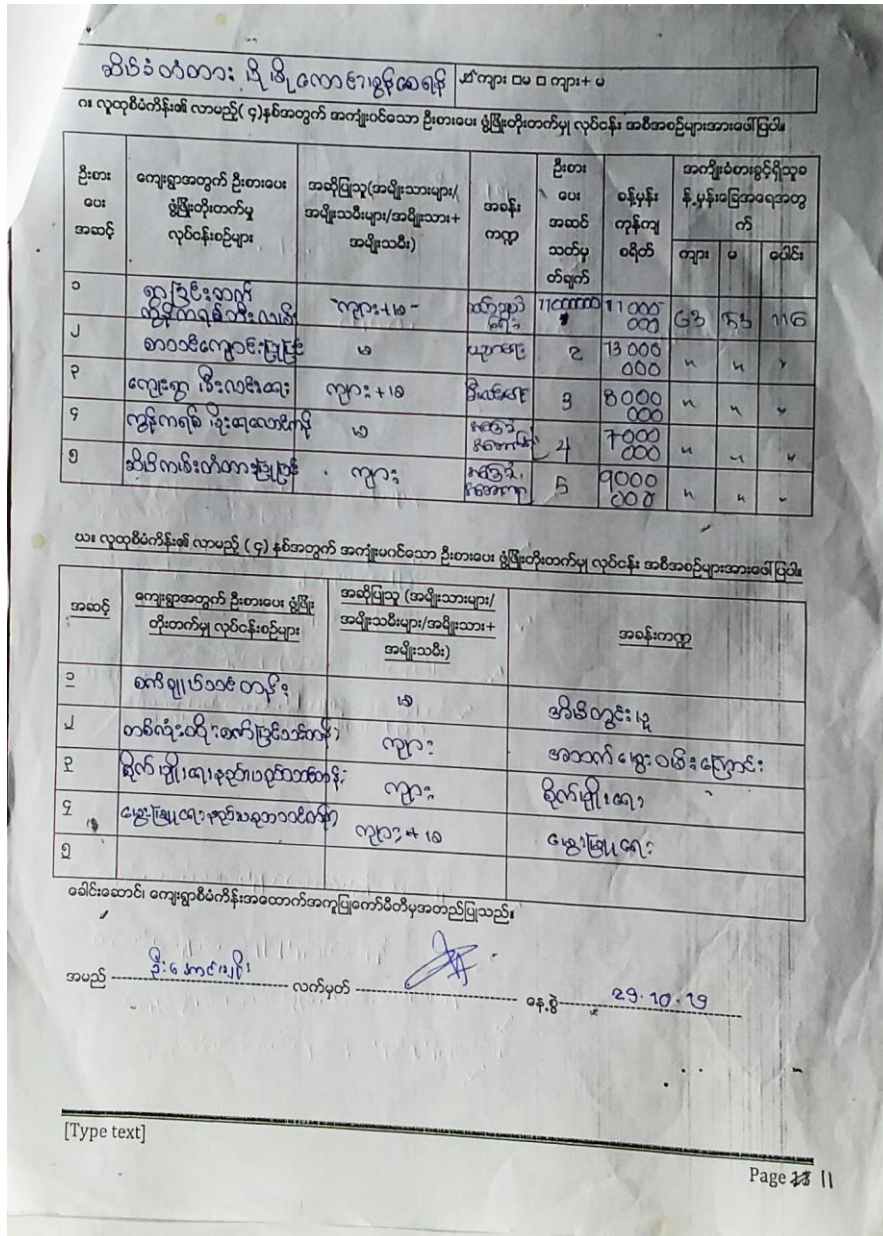 ဆိပ်ခံတံတား ☑ ကျား □မ □ ကျား+ မ
ဂ။ လူထုစီမံကိန်း၏ လာမည့်( ၄)နှစ်အတွက် အကျုံးဝင်သော ဦးစားပေး ဖွံ့ဖြိုးတိုးတက်မှု လုပ်ငန်း အစီအစဉ်များအားဖေါ်ပြပါ။
ဦးစားပေးအဆင့် ကျေးရွာအတွက် ဦးစားပေး ဖွံ့ဖြိုးတိုးတက်မှု လုပ်ငန်းစဉ်များ အဆိုပြုသူ(အမျိုးသားများ/အမျိုးသမီးများ/အမျိုးသား+အမျိုးသမီး) အခန်းကဏ္ဍ ဦးစားပေးအဆင်သတ်မှတ်ချက် ခန့်မှန်းကုန်ကျစရိတ် အကျိုးခံစားခွင့်ရှိသူခန့်မှန်းခြေအရေအတွက်
ကျား မ ပေါင်း
၁ ရွာခြင်းဆက် ကွန်ကရစ် ကျား+မ 11000000 63 53 116
၂ စာသင်ကျောင်းပြုပြင် မ ပညာရေး 2 13 000 000 " " "
၃ ကျေးရွာ မီးလင်းရေး ကျား+မ မီးလင်းရေး 3 8000 000 " " "
၄ ကွန်ကရစ် မိုးရေလှောင်ကန် မ 4 7000 000 " " "
၅ ဆိပ်ကမ်းတံတားပြုပြင် ကျား 5 9000 000 " " "
ဃ။ လူထုစီမံကိန်း၏ လာမည့် ( ၄) နှစ်အတွက် အကျုံးမဝင်သော ဦးစားပေး ဖွံ့ဖြိုးတိုးတက်မှု လုပ်ငန်း အစီအစဉ်များအားဖေါ်ပြပါ။
အဆင့် ကျေးရွာအတွက် ဦးစားပေး ဖွံ့ဖြိုးတိုးတက်မှု လုပ်ငန်းစဉ်များ အဆိုပြုသူ (အမျိုးသားများ/အမျိုးသမီးများ/အမျိုးသား+အမျိုးသမီး) အခန်းကဏ္ဍ
၁ စက်ချုပ်သင်တန်း မ အိမ်တွင်းမှု
၂ ကျား အသက်မွေးဝမ်းကြောင်း
၃ စိုက်ပျိုးရေးနည်းပညာသင်တန်း ကျား စိုက်ပျိုးရေး
၄ မွေးမြူရေးနည်းပညာသင်တန်း ကျား+မ မွေးမြူရေး
၅
ခေါင်းဆောင်၊ ကျေးရွာစီမံကိန်းအထောက်အကူပြုကော်မီတီမှအတည်ပြုသည်။
အမည် ဦးအောင်မျိုး လက်မှတ် နေ့စွဲ 29.10.19
[Type text]
Page 11